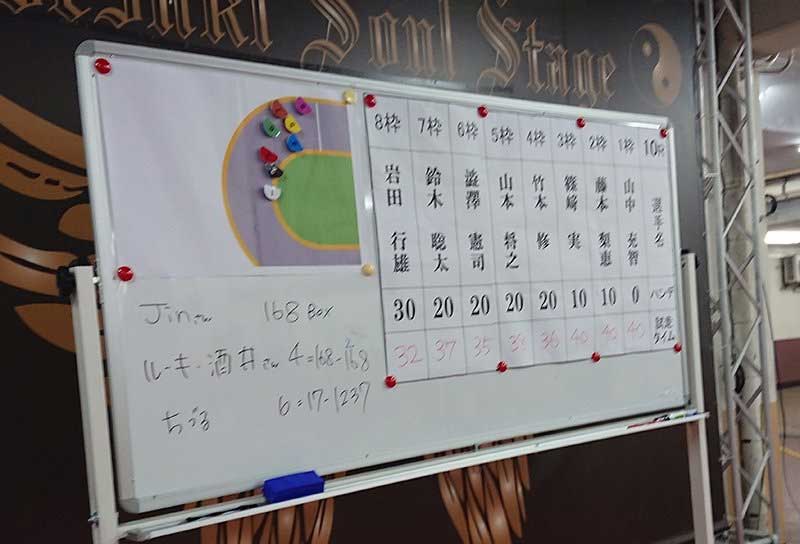 Soul Stage
8枠 7枠 6枠 5枠 4枠 3枠 2枠 1枠 10R
岩田 行雄 鈴木 聡太 滋澤 憲司 山本 将之 竹本 修 篠崎 実 藤本 梨恵 山中 充智 選手名
30 20 20 20 20 10 10 0 ハンデ
32 37 35 36 40 40 40 試走タイム
Jinさん 168 BOX
ルーキー酒井さん 4=168-168
ちづる 6=17-1237